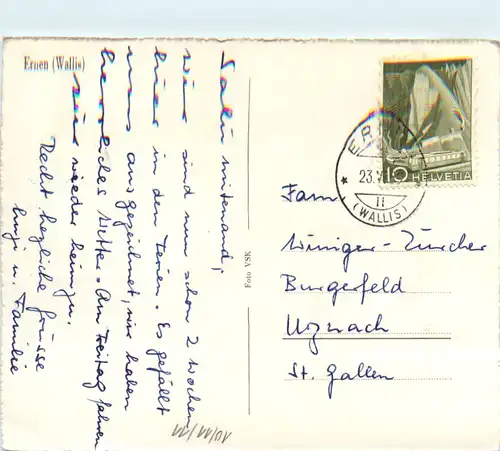 Ernen (Wallis)
Salü mitenand,
wir sind nun schon 2 Wochen
hier in den Ferien. Es gefällt
uns ausgezeichnet, wir haben
herrliches Wetter. Am Freitag fahren
wir wieder heimzu.
Recht herzliche Grüsse
u. Familie
Foto ASK
10/11/11
ER
23.V
11
(WALLIS)
10 HELVETIA
Fam.
Winiger-Zürcher
Burgerfeld
Uznach
St. Gallen